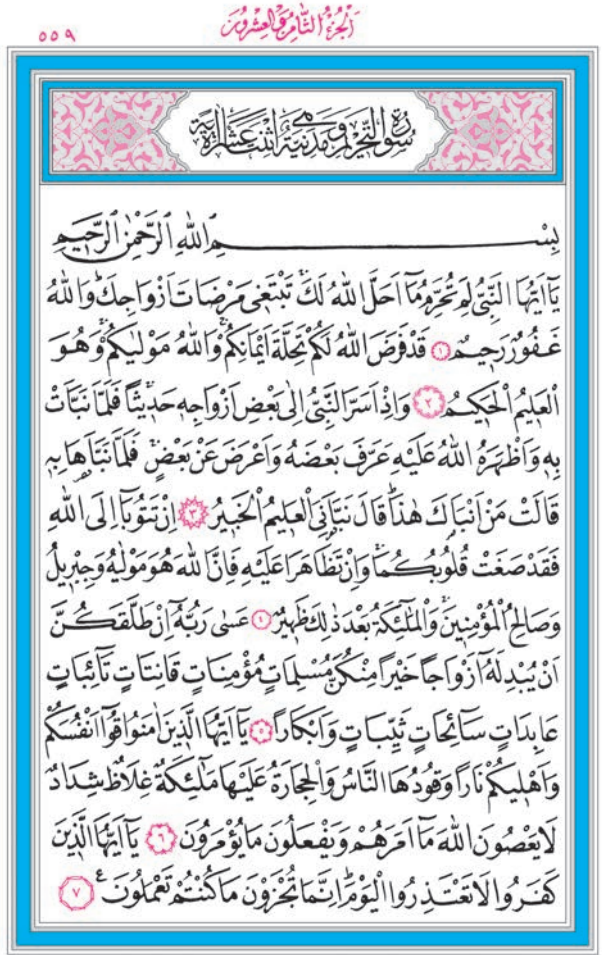 الجزء الثامن والعشرون
٥٥٩
سورة التحريم وهي مدنية اثنتا عشرة آية
بِسْمِ اللهِ الرَّحْمٰنِ الرَّحٖيمِ
يَٓا اَيُّهَا النَّبِيُّ لِمَ تُحَرِّمُ مَٓا اَحَلَّ اللهُ لَكَۚ تَبْتَغٖي مَرْضَاتَ اَزْوَاجِكَۜ وَاللهُ
غَفُورٌ رَحٖيمٌ ﴿١﴾ قَدْ فَرَضَ اللهُ لَكُمْ تَحِلَّةَ اَيْمَانِكُمْۚ وَاللهُ مَوْلٰيكُمْۚ وَهُوَ
الْعَلٖيمُ الْحَكٖيمُ ﴿٢﴾ وَاِذْ اَسَرَّ النَّبِيُّ اِلٰى بَعْضِ اَزْوَاجِهٖ حَدٖيثًاۚ فَلَمَّا نَبَّاَتْ
بِهٖ وَاَظْهَرَهُ اللهُ عَلَيْهِ عَرَّفَ بَعْضَهُ وَاَعْرَضَ عَنْ بَعْضٍۚ فَلَمَّا نَبَّاَهَا بِهٖ
قَالَتْ مَنْ اَنْبَاَكَ هٰذَاۜ قَالَ نَبَّاَنِيَ الْعَلٖيمُ الْخَبٖيرُ ﴿٣﴾ اِنْ تَتُوبَٓا اِلَى اللهِ
فَقَدْ صَغَتْ قُلُوبُكُمَاۚ وَاِنْ تَظَاهَرَا عَلَيْهِ فَاِنَّ اللهَ هُوَ مَوْلٰيهُ وَجِبْرٖيلُ
وَصَالِحُ الْمُؤْمِنٖينَۚ وَالْمَلٰٓئِكَةُ بَعْدَ ذٰلِكَ ظَهٖيرٌ ﴿٤﴾ عَسٰى رَبُّهُٓ اِنْ طَلَّقَكُنَّ
اَنْ يُبْدِلَهُٓ اَزْوَاجًا خَيْرًا مِنْكُنَّ مُسْلِمَاتٍ مُؤْمِنَاتٍ قَانِتَاتٍ تَٓائِبَاتٍ
عَابِدَاتٍ سَٓائِحَاتٍ ثَيِّبَاتٍ وَاَبْكَارًا ﴿٥﴾ يَٓا اَيُّهَا الَّذٖينَ اٰمَنُوا قُٓوا اَنْفُسَكُمْ
وَاَهْلٖيكُمْ نَارًا وَقُودُهَا النَّاسُ وَالْحِجَارَةُ عَلَيْهَا مَلٰٓئِكَةٌ غِلَاظٌ شِدَادٌ
لَا يَعْصُونَ اللهَ مَٓا اَمَرَهُمْ وَيَفْعَلُونَ مَا يُؤْمَرُونَ ﴿٦﴾ يَٓا اَيُّهَا الَّذٖينَ
كَفَرُوا لَا تَعْتَذِرُوا الْيَوْمَۜ اِنَّمَا تُجْزَوْنَ مَا كُنْتُمْ تَعْمَلُونَ ع ﴿٧﴾